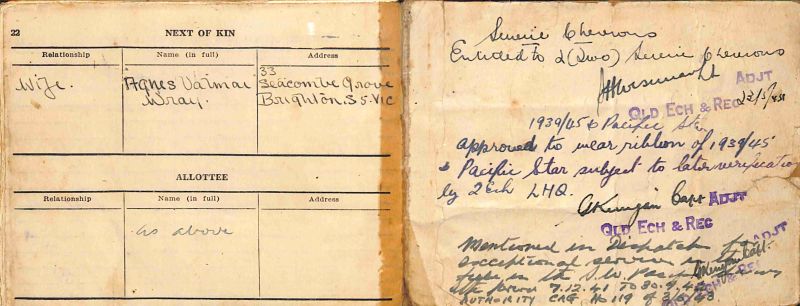 22
NEXT OF KIN
Relationship Name (in full) Address
Wife. Agnes Valmai Wray. 33 Seacombe Grove Brighton. S 5. Vic
ALLOTTEE
Relationship Name (in full) Address
as above
Service Chevrons
Entitled to 2 (Two) Service Chevrons
ADJT
QLD ECH & REC
1939/45 & Pacific Str
Approved to wear ribbon of 1939/45
& Pacific Star subject to later verification
by 2 Ech LHQ.
Capt ADJT
QLD ECH & REC
Mentioned in Dispatch for
exceptional service in the
field in the S.W. Pacific
7.12.41 TO 30.9.
AUTHORITY CAG No 119 of
ADJT